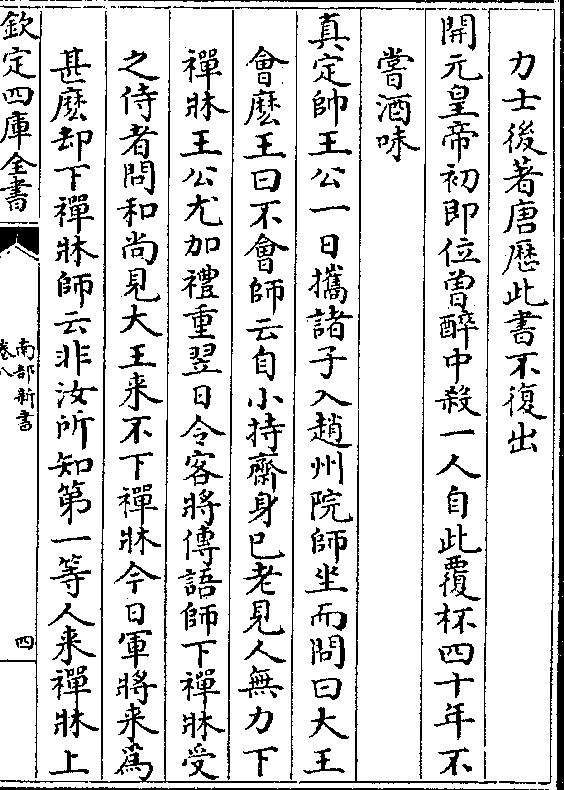 力士後著唐歴此書不復出
開元皇帝初即位曽醉中殺一人自此覆杯四十年不
嘗酒味
真定帥王公一日攜諸子入趙州院師坐而問曰大王
會麽王曰不會師云自小持齋身已老見人無力下
禪牀王公尤加禮重翌日令客將傳語師下禪牀受
之侍者問和尚見大王来不下禪牀今日軍將来為
甚麽却下禪牀師云非汝所知第一等人来禪牀上
欽定四庫全書
南部新書
卷八
四